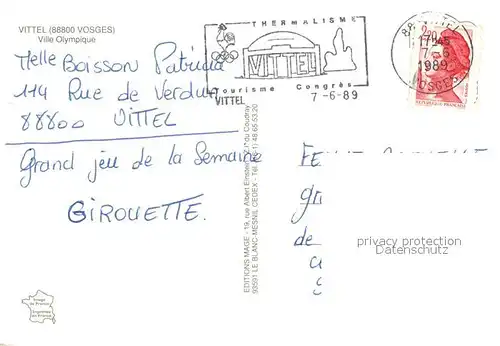 VITTEL (88800 VOSGES)
Ville Olympique
Melle Boisson Patricia
114 Rue de Verdun
88800 VITTEL
Grand jeu de la Semaine
GIROUETTE.
THERMALISME
VITTEL
Tourisme Congrès
VITTEL 7-6-89
17H45
7-6
1989
VOSGES
2,20
REPUBLIQUE FRANÇAISE
EDITIONS MAGE - 19, rue Albert Einstein - Z.I. du Coudray
93591 LE BLANC-MESNIL CEDEX - Tél. (16-1) 48 65 53 20
de
privacy protection
Datenschutz
Image
de France
Imprimée
en France